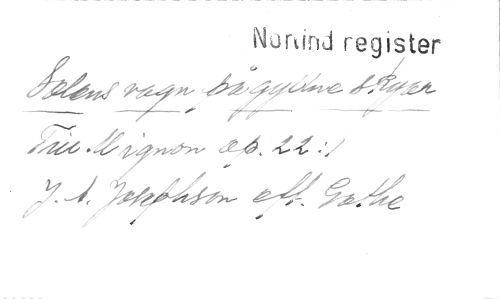 Norlind register
Solens vagn på gyllne skyar
Till Mignon op. 22:1
J. A. Josephson eft. Gœthe